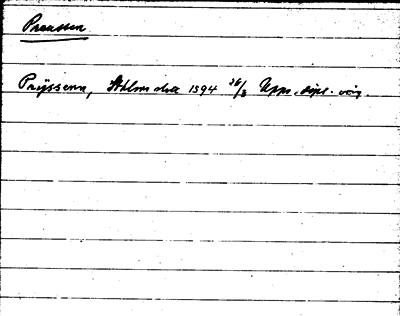 Preussen
Prÿssenn, Sthlms dra 1594 26/3 Upps. dipl. vis.